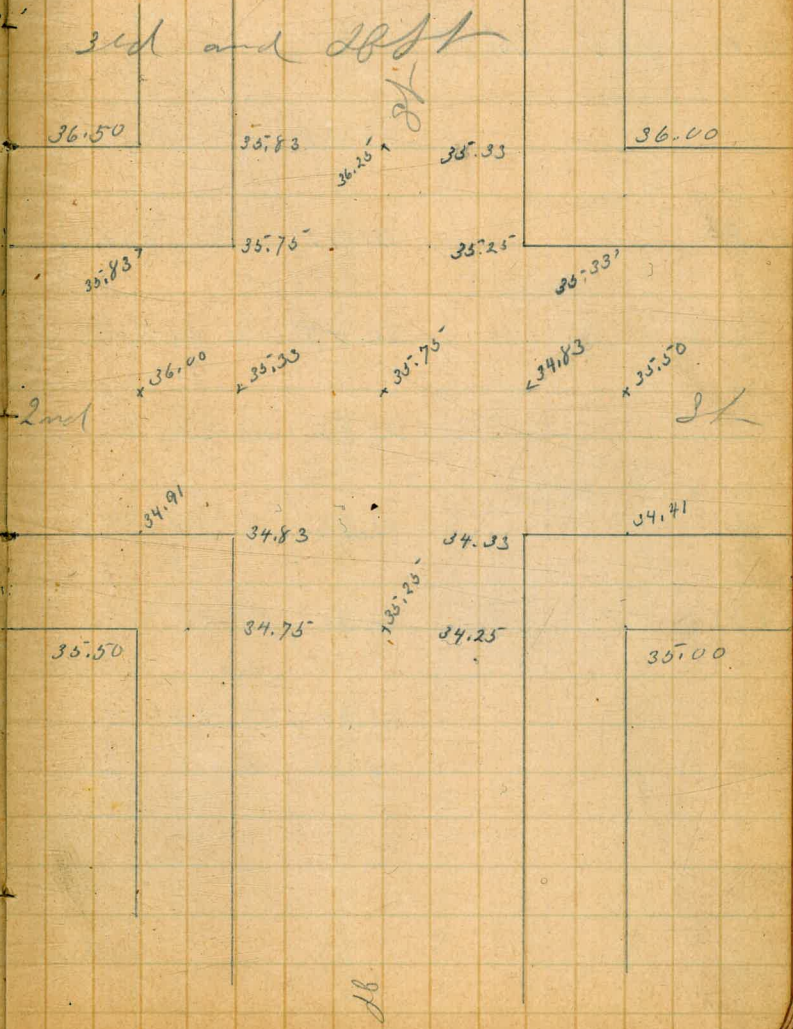 3rd and H St
St
36.50 35.83 36.25 35.33 36.00
35.83 35.75 35.25 35.33
36.00 35.33 35.75 34.83 35.50
2nd St
34.91 34.83 34.33 34.41
35.50 34.75 35.25 34.25 35.00